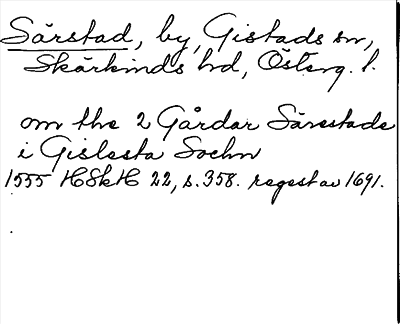 Särstad, by, Gistads sn,
Skärkinds hd, Österg. l.
om the 2 Gårdar Särestade
i Gislesta Sochn
1555 HSkH 22, s. 358. regest av 1691.